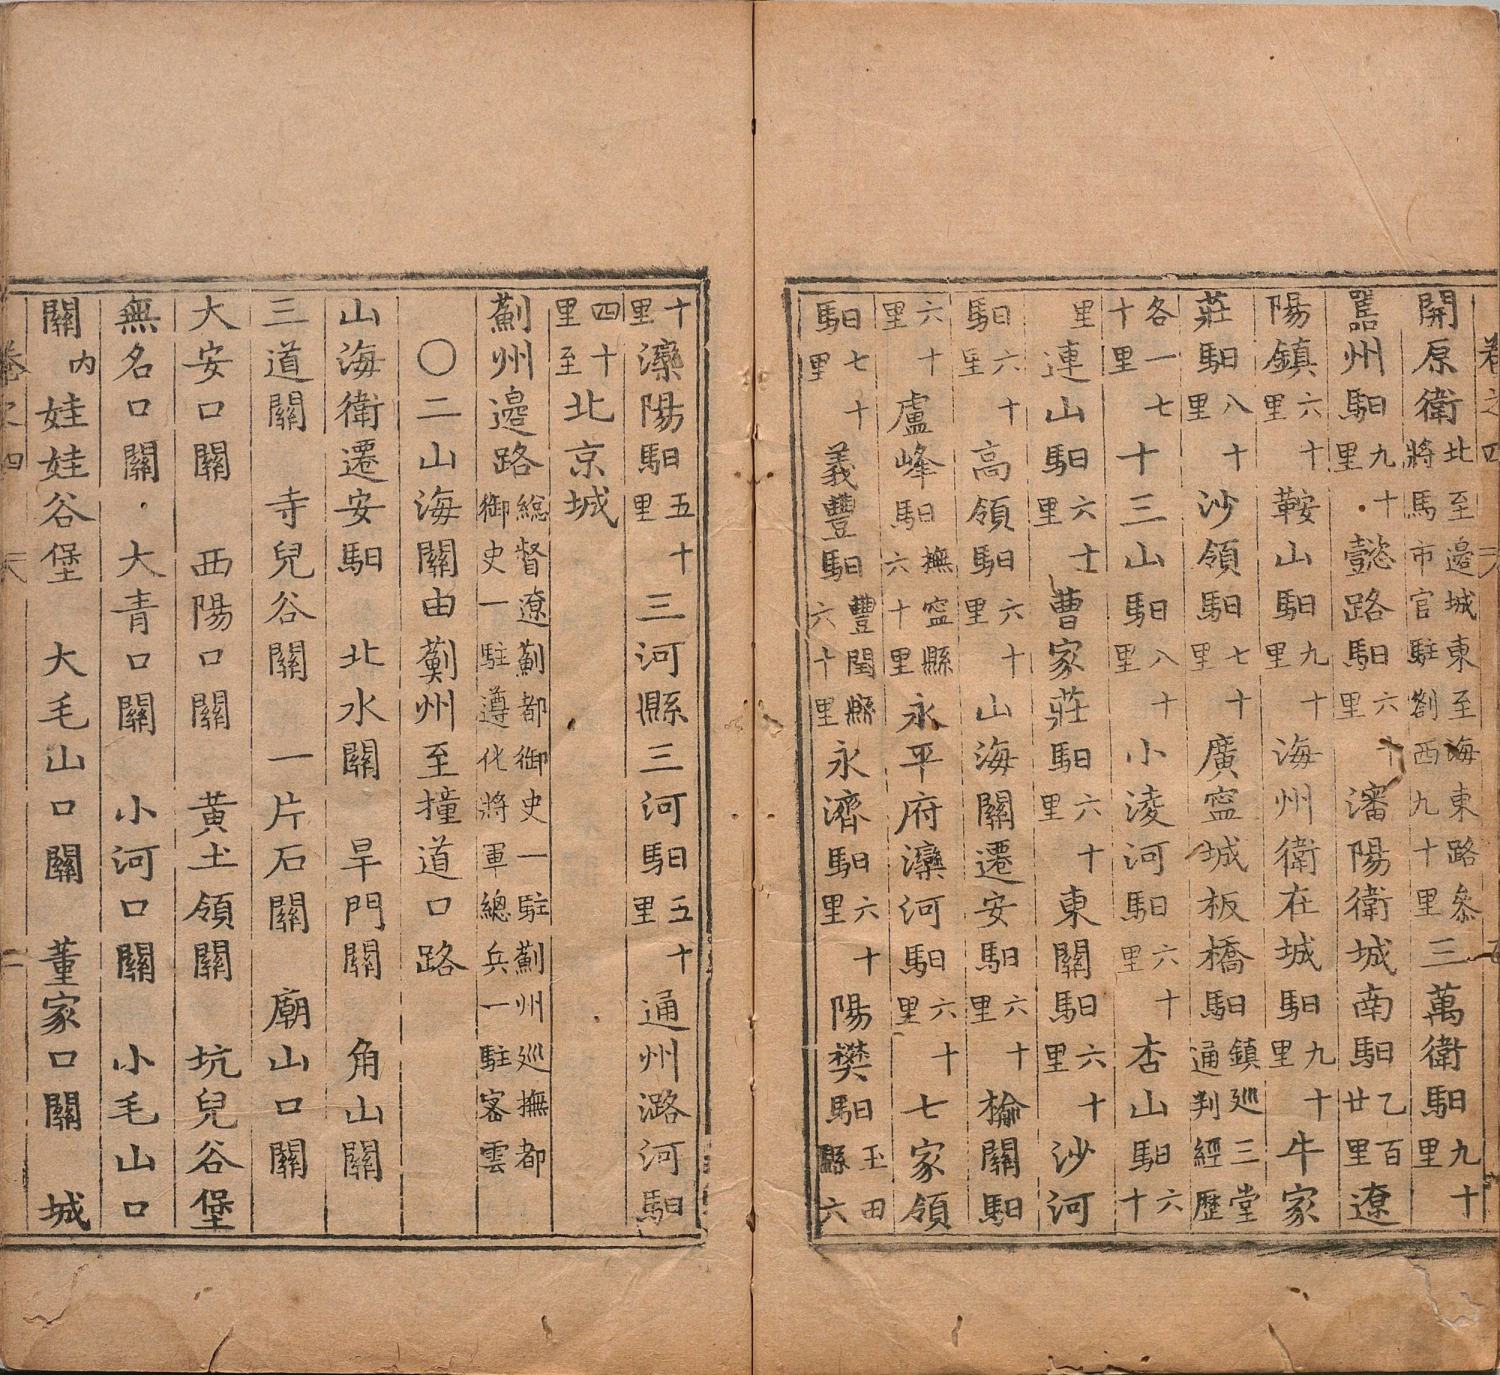 開原衛北至邊城東至海東路參將馬市官駐劄西九十里三萬衛馹九十里
嚚州馹九十里懿路馹六十里瀋陽衛城南馹乙百廿里遼
陽鎮六十里鞍山馹九十里海州衛在城馹九十里牛家
莊馹八十里沙領馹七十里廣寍城板橋馹鎮巡三堂通判經歷
各一七十里十三山馹八十里小凌河馹六十里杏山馹六十
里連山馹六十里曹家莊馹六十里東關馹六十里沙河
馹六十里高領馹六十里山海關遷安馹六十里榆關馹
六十里盧峰馹撫寍縣六十里永平府灤河馹六十里七家領
馹七十里義豐馹豐閏縣六十里永濟馹六十里陽樊馹玉田縣六
十里灤陽馹五十里三河縣三河馹五十里通州潞河馹
四十里至北京城
薊州邉路總督遼薊都御史一駐薊州巡撫都御史一駐遵化將軍總兵一駐密雲
〇二山海關由薊州至撞道口路
山海衛遷安馹 北水關 旱門關 角山關
三道關 寺兒谷關 一片石關 廟山口關
大安口關 西陽口關 黃土領關 坑兒谷堡
無名口關 大青口關 小河口關 小毛山口
關内娃娃谷堡 大毛山口關 董家口關 城
卷之四